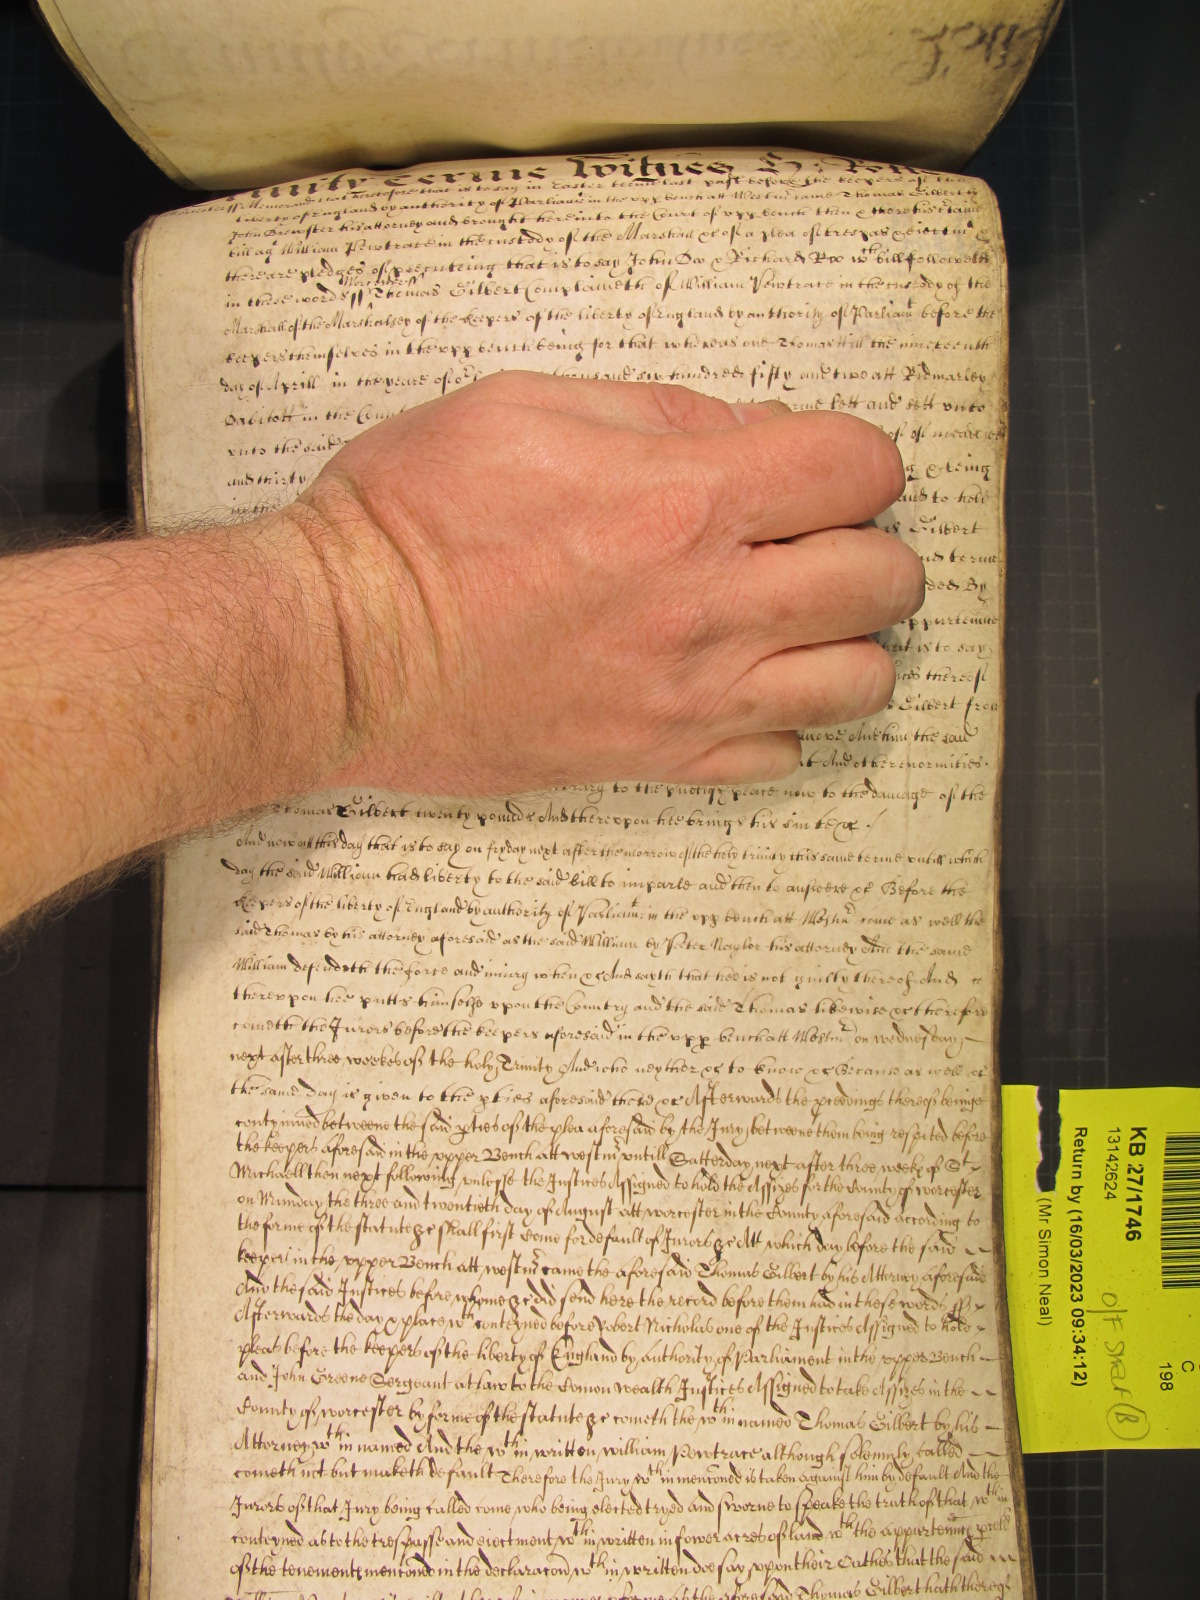 Trinity Terme Witnes H: Ro
Memorand that heretofore that is to say in Easter terme last past before the keepers of the
liberty of England by authority of Parliamt in the upp bench att Westmr came Thomas Gilbert by
John Brewster his attorney and brought here into the Court of upp bench then & there his certaine
bill agt William Pewtrace in the custody of the Marshall &c of a plea of trespas & eiectmt &
there are pledges of prosecuteing that is to say John Do & Richard Roo wch bill followeth
in these words ss Worcester ss Thomas Gilbert Complaineth of William Pewtrace in the custody of the
Marshall of the Marshalsey of the keepers of the liberty of England by authority of Parliamt before the
keepers themselves in the upp bench being for that whereas one Thomas Hill the nineteenth
day of Aprill in the yeare of or thousand six hundred fifty and two att Ridmarley
Dabitott in the Count terme lett and sett unto
unto the said of meadow
and thirty & being
in the and to hold
Gilbert
and terme
ded By
appurtennc
that is to say
thereof
Gilbert from
amove And him the said
And other enormities
contrary to the publiq peace now to the damage of the
Thomas Gilbert twenty pounds And thereupon hee brings his suite &c /
And now att this day that is to say on fryday next after the morrow of the holy trinity this same terme untill which
day the said William had liberty to the said bill to imparle and then to answere &c Before the
keepers of the liberty of England by authority of Parliamt in the upp bench att Westmr come as well the
said Thomas by his attorney aforesaid as the said William by Peter Naylor his attorney And the same
William defendeth the force and iniury when &c And sayth that hee is not guilty thereof And
thereupon hee putts himselfe upon the Country and the said Thomas likewise &c therefore
cometh the Jurors before the keepers aforesaid in the upp bench att Westmr on wednesday
next after three weekes of the holy Trinity And who neyther &c to know &c Because as well &c
the same day is given to the pties aforesaid there &c Afterwards the pceedings thereof beinge
contynued betweene the said pties of the plea aforesaid by the Jury betweene them being respited before
the keepers aforesaid in the upper Bench att westmr untill Satterday next after three weeks of St
Michaell then next following unlesse the Justices Assigned to hold the Assizes for the County of worcester
on Munday the three and twentieth day of August att worcester in the County aforesaid according to
the forme of the statute &c shall first Come for default of Jurors &c Att which day before the said
keepers in the upper Bench att westmr came the aforesaid Thomas Gilbert by his Attorney aforesaid
And the said Justices before whome &c did send here the record before them had in these words ss
Afterwards the day & place wth in conteyned before Robert Nicholas one of the Justices Assigned to hold
pleas before the keepers of the liberty of England by authority of Parliament in the upper Bench
and John Greene Sergeant at law to the Comon wealth Justices Assigned to take Assizes in the
County of worcester by forme of the statute &c cometh the wth in named Thomas Gilbert by his
Attorney wth in named And the wth in written william Pewtrace although solemnly called
cometh not but maketh default Therefore the Jury wth in menconed is taken against him by default And the
Jurors of that Jury being called come who being elected tryed and sworne to speake the truth of that wth in
conteyned as to the trespasse and eiectment wth in written in fower acres of land wth the appurtennc pcell
of the tenements menconed in the declaracon wth in written doe say upon their Oathes that the said
aforesaid Thomas Gilbert hath thereof
KB 27/1746
13142624
Return by (16/03/2023 09:34:12)
(Mr Simon Neal)
C
198
O/F Shelf (B)